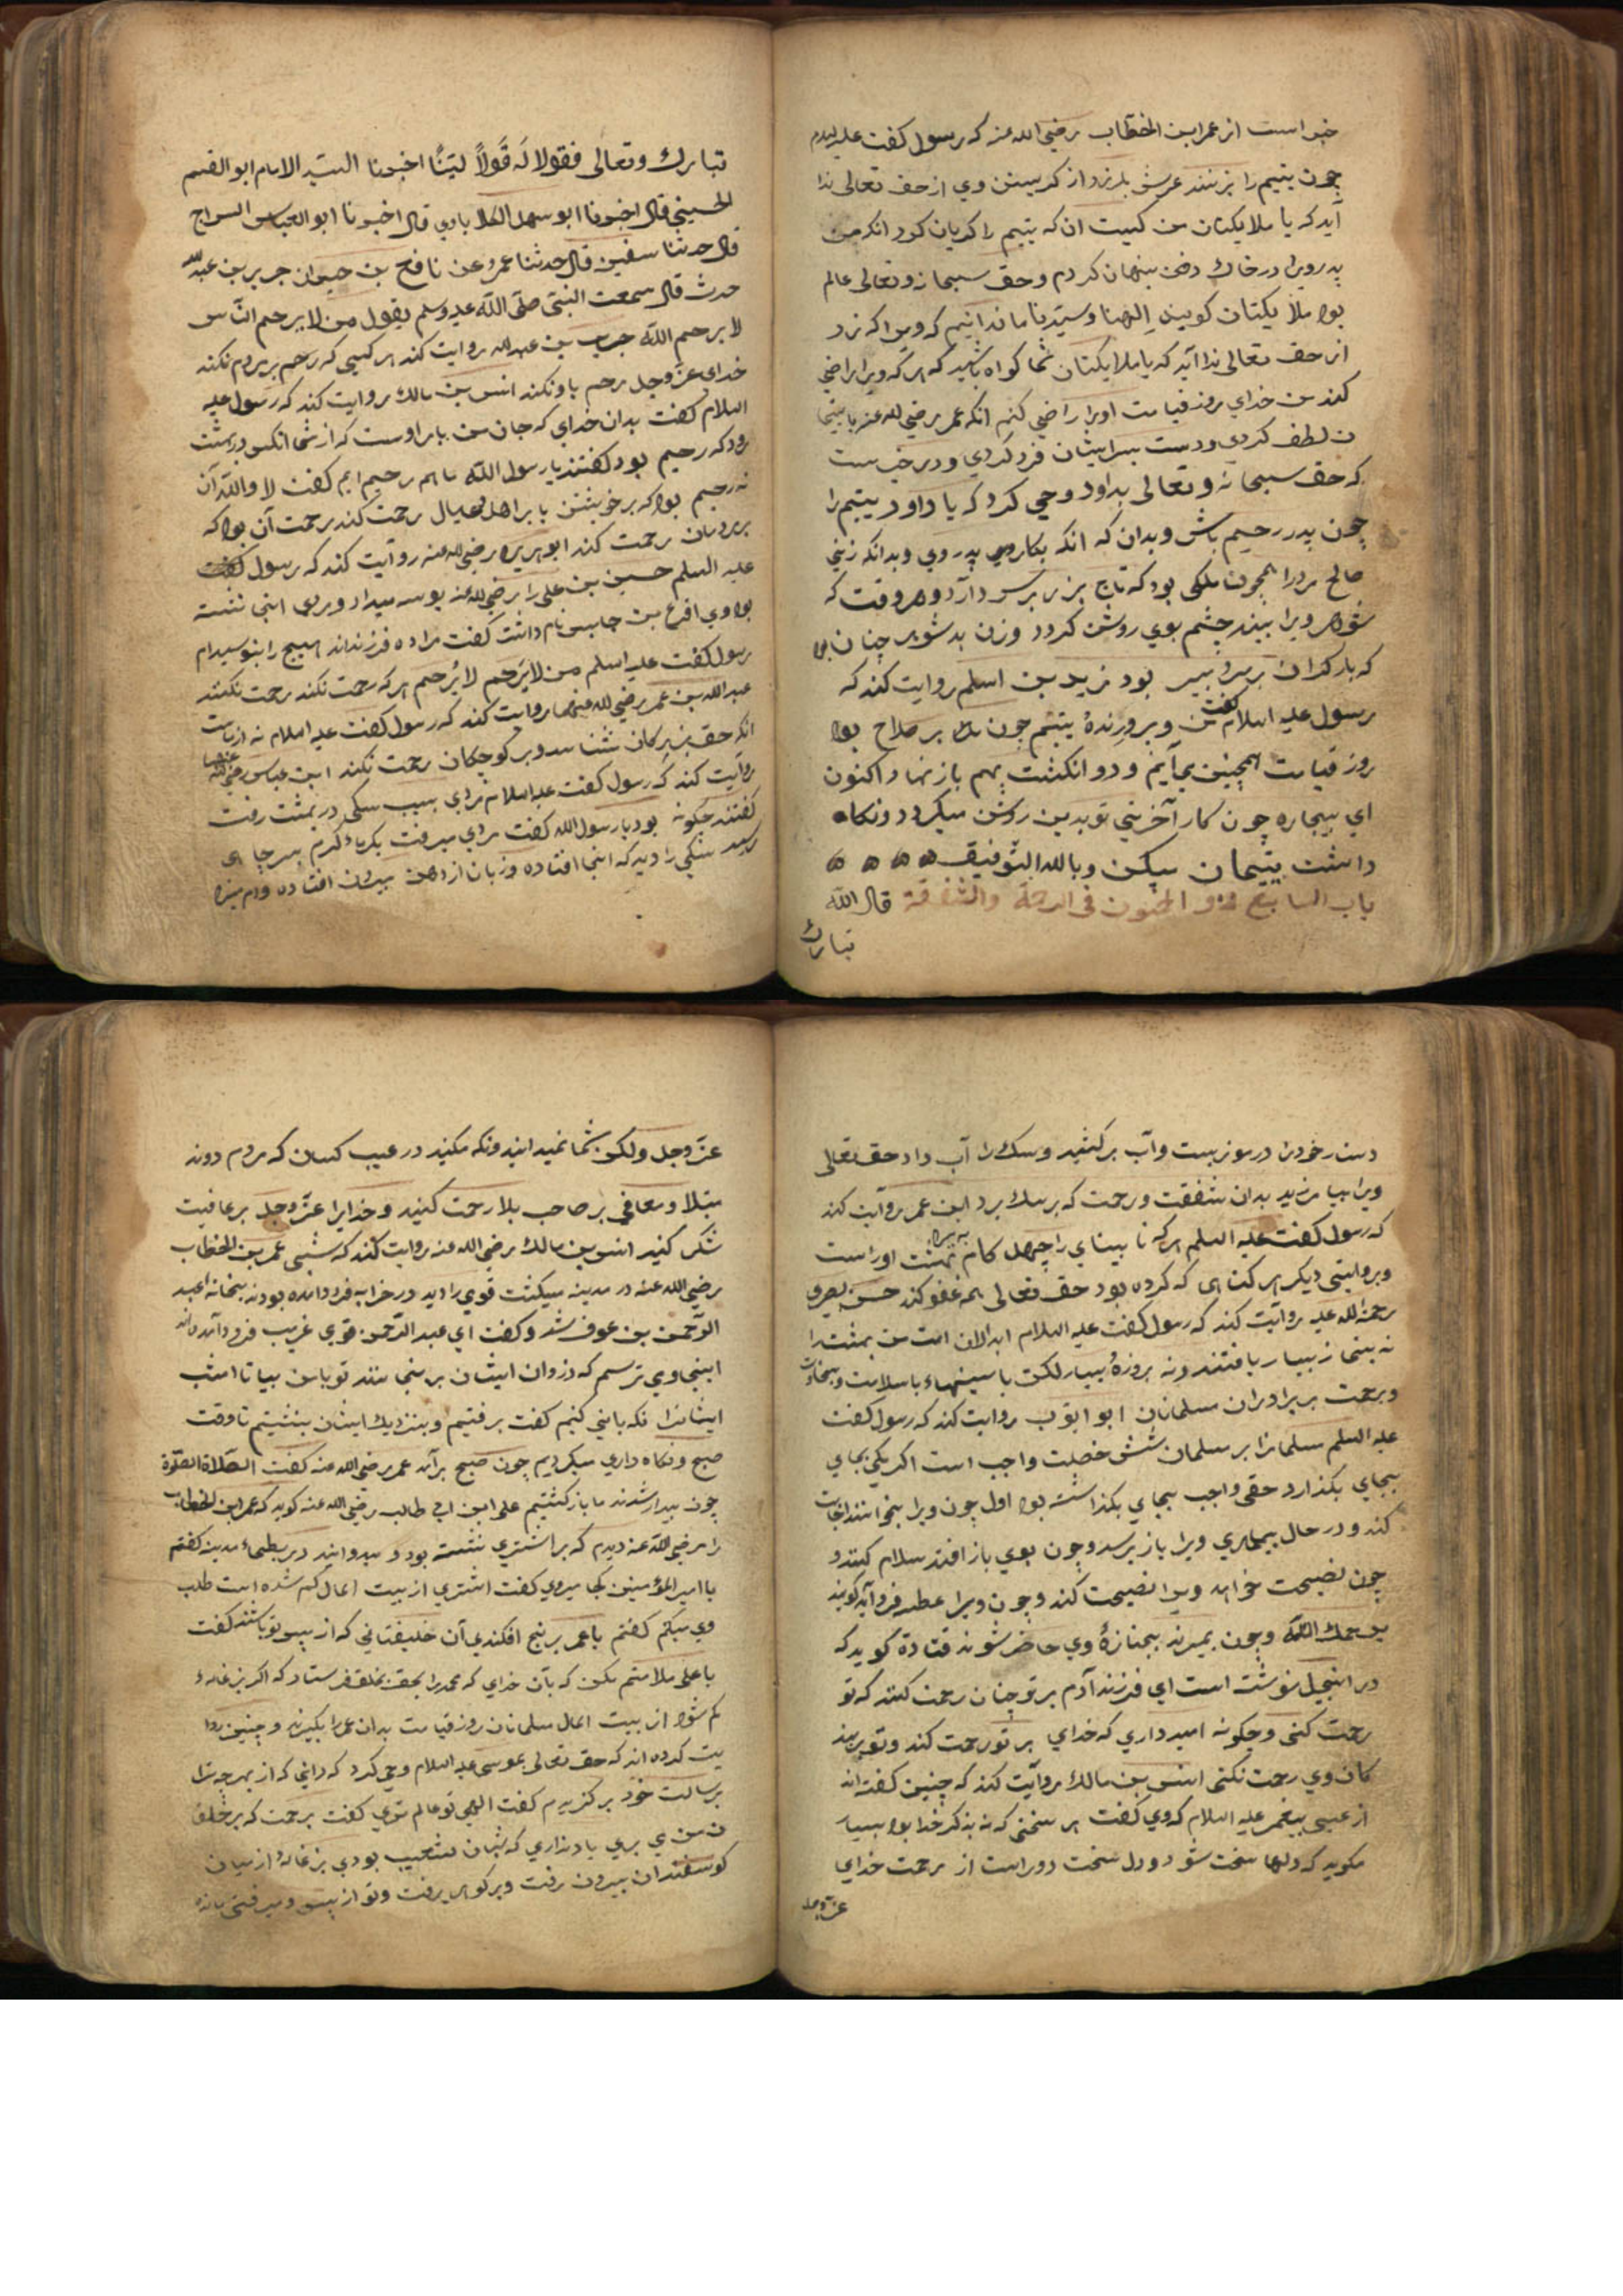 خبر است از عمر ابن الخطاب رضی الله عنه که رسول کفت علیه السلام
چون یتیم را بزنند عرش بلرزد از کریستن وی از حق تعالی ندا
آید که یا ملایکتان من کیست ان که یتیم را کریان کرد انکه من
پدر ویرا در خاك دفن پنهان کردم و حق سبحانه و تعالی عالم
بود ملایکتان کویند الهنا و سیدنا ما ندانیم که ویرا که زد
از حق تعالی ندا آید که یا ملایکتان شما کواه باشید که هر که ویرا راضی
کند من خدای روز قیامت اورا راضی کنم انکه عمر رضی الله عنه با یتیما
ن لطف کردی و دست بسر ایشان فرو کردی و در خبرست
که حق سبحانه و تعالی بداود وحی کرد که یا داود یتیم را
چون پدر رحیم باش و بدان که انکه بکاری بدروی و بدانکه زنی
صالح مرد را همچون ملکی بود که تاج بزر برسر دارد و هر وقت که
شوهر ویرا بیند چشم بوی روشن کردد و زن بد شوهر چنان بود
که بار کران برسر پیر بود زید بن اسلم روایت کند که
رسول علیه السلام کفت من و پرورندهٔ یتیم چون بر صلاح بود
روز قیامت همچنین بیآیم و دو انکشت بهم باز نهاد اکنون
ای بیچاره چون کار آخرتی تو بدین روشن میکردد و نکاه
داشت یتیمان میکن وبالله التوفیق
باب السابع و الخمسون فی الرحمة والشفقة قال الله
تبارك
تبارك وتعالی فقولا له قولاً لیناً اخبرنا السید الامام ابو القسم
الحسینی قال اخبرنا ابو سهل الکلابادی قال اخبرنا ابو العباس السراج
قال حدثنا سفین قال حدثنا عمرو عن نافع بن جبیر ان جریر بن عبد الله
حدث قال سمعت النبی صلی الله علیه وسلم یقول من لا یرحم الناس
لا یرحم الله جریر بن عبد الله روایت کند هر کسی که رحم بر مردم نکند
خدای عز وجل رحم باو نکند انس بن مالك روایت کند که رسول علیه
السلام کفت بدان خدای که جان من بامر اوست که از شما انکس در بهشت
رود که رحیم بود کفتند یا رسول الله ما هم رحیم ایم کفت لا والله آن
نه رحیم بود که بر خویشتن یا بر اهل و عیال رحمت کند رحمت آن بود که
بر مردمان رحمت کند ابو هریره رضی الله عنه روایت کند که رسول کفت
علیه السلم حسین بن علی را رضی الله عنه بوسه میداد و مردی اینجا نشسته
بود وی اقرع بن حابس نام داشت کفت مرا ده فرزنداند هیچ را بنوسیدام
رسول کفت علیه السلم من لا یَرحم لا یُرحم هر که رحمت نکند رحمت نکنند
عبد الله بن عمر رضی الله عنهما روایت کند که رسول کفت علیه السلام نه از ماست
انکه حق بزرکان نشناسد و بر کوچکان رحمت نکند ابن عباس رضی الله عنهما
روایت کند که رسول کفت علیه السلام مردی بسبب سکی در بهشت رفت
کفتند چکونه بود یا رسول الله کفت مردی میرفت بکرماء کرم بسر چاهی
رسید سکی را دید که اینجا افتاده و زبان از دهن بیرون افتاده ودم میزد
دستار خود را در موزه بست و آب برکشید و سك را آب داد حق تعالی
ویرا بیامرزید بدان شفقت و رحمت که بر سك برد ابن عمر روایت کند
که رسول کفت علیه السلم هر که نا بینای را چهل کام ببرد بهشت او راست
و بروایتی دیکر هر کناهی که کرده بود حق تعالی همه عفو کند حسن بصری
رحمة الله علیه روایت کند که رسول کفت علیه السلام ابدالان امت من بهشت را
نه بنماز بسیار یافتند و نه بروزهٔ بسیار لکن با سینهاء با سلامت و سخاوت
و رحمت بر برادران مسلمانان ابو ایوب روایت کند که رسول کفت
علیه السلم مسلمانرا بر مسلمان شش خصلت واجب است اکر یکی بجای
بجای بکذارد حقی واجب بجای بکذاشته بود اول چون ویرا بخوانند اجابت
کند و در حال بیماری ویرا باز پرسد و چون بوی باز افتد سلام کند و
چون نصیحت خواهد ویرا نصیحت کند و چون ویرا عطسه فرو آید کوید
یرحمك الله و چون بمیرد بجنازهٔ وی حاضر شوند قتادة کوید که
در انجیل نوشته است ای فرزند آدم بر تو چنان رحمت کنند که تو
رحمت کنی و چکونه امید داری که خدای بر تو رحمت کند و تو بر بند
کان وی رحمت نکنی انس بن مالك روایت کند که چنین کفته اند
از عیسی پیغمبر علیه السلام که وی کفت هر سخنی که نه بذکر خدا بود بسیار
مکوید که دلها سخت شود و دل سخت دور است از رحمت خدای
عز وجل
عز وجل ولکن شما نمیدانید و نکه مکنید در عیب کسان که مردم دوند
مبتلا و معافی بر صاحب بلا رحمت کنید و خدایرا عز وجل بر عافیت
شکر کنید انس بن مالك رضی الله عنه روایت کند که شبی عمر بن الخطاب
رضی الله عنه در مدینه میکشت قومی را دید در خرابه فرود امده بودند بخانه عبد
الرحمن بن عوف شد و کفت ای عبد الرحمن قومی غریب فرود آمده اند
اینجا و می ترسم که دزدان ایشان برنجانند تو با من بیا تا امشب
ایشانرا نکه بانی کنیم کفت برفتیم و بنزدیك ایشان بنشستیم تا وقت
صبح و نکاه داری میکردیم چون صبح برآمد عمر رضی الله عنه کفت الصلاة الصلوة
چون بیدار شدند ما باز کشتیم علی ابن ابی طالب رضی الله عنه کوید که عمر ابن الخطاب
را رضی الله عنه دیدم که بر اشتری نشسته بود و میدوانید در بطحاء مدینه کفتم
یا امیر المؤمنین کجا میروی کفت اشتری از بیت المال کم شده است طلب
وی میکنم کفتم یا عمر برنج افکندی آن خلیفتانی که از پس تو باشند کفت
یا علی ملامتم مکن که بآن خدای که محمد را بحق بخلق فرستاد که اکر بزغالهٔ
کم شود از بیت المال مسلمانان روز قیامت بدان عمر را بکیرند و چنین روا
یت کرده اند که حق تعالی بموسی علیه السلام وحی کرد که دانی که از بهر چه ترا
برسالت خود برکزیدم کفت الهی تو عالم تری کفت برحمت که بر خلق
من می بری یاد نداری که شبان شعیب بودی بزغالهٔ از میان
کوسفندان بیرون رفت و بر کوه برفت و تو از پس و میرفتی مانده